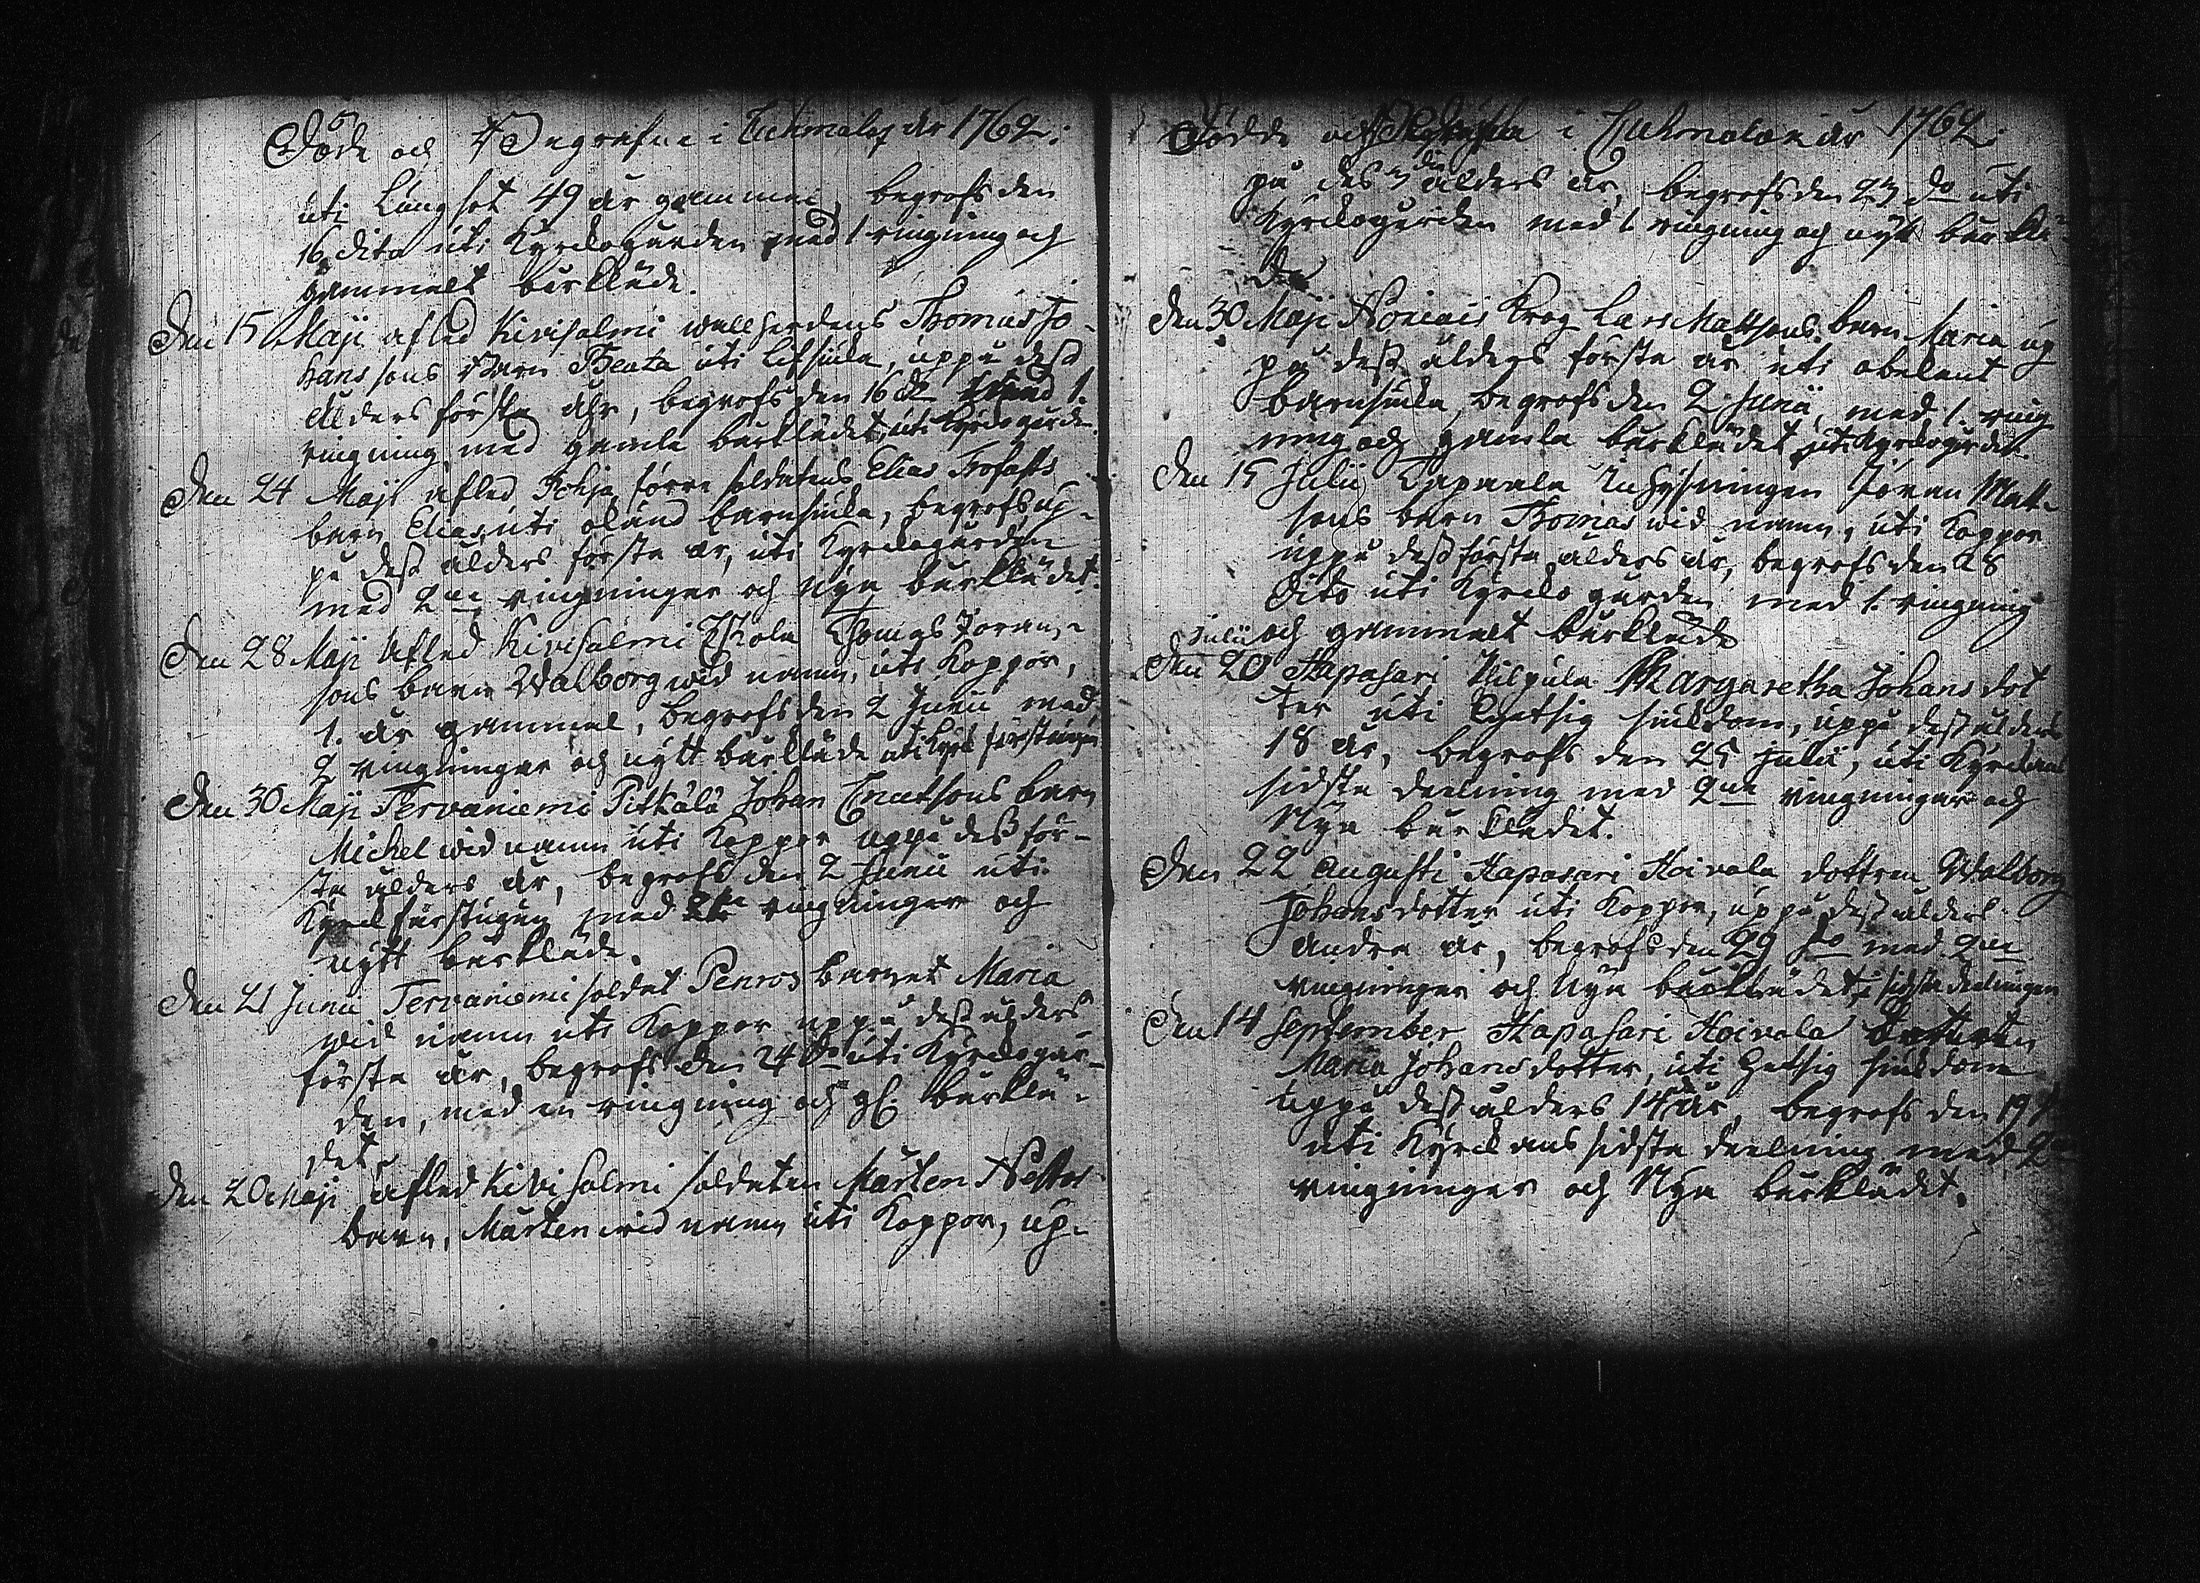 Döde och Begrafne i Tuhmalax år 1762.
uti Lungsot 49 år gammal, begrofs den
16 dito uti Kyrkogården med 1 ringning och
gammalt bårkläde.
Den 15 Maji afled Kivisalmi wallherdens Thomas Jo-
hanssons Barn Beata uti lefsiuka, uppå dess
ålders första åhr, begrofs den 16 do 1.
ringning med gamla bårklädet, uti Kyrkogården.
Den 24 Maji afled Pohja förre soldatens Elias
barn Elias uti okänd barnsiuka, begrofs up-
på dess ålders första år, uti Kyrkogården
med 2ne ringningar och Nya bårklädet.
Den 28 Maji Afled Kivisalmi Thomas Joran-
sons barn Walborg wid namn, uti Koppor,
1. år gammal, begrofs den 2 Junii med
2 ringningar och nytt bårkläde uti kyrk förstugun
Den 30 Maji Tervaniemi Pitkälä Johan Cnutsons barn
Michel wid namn uti Koppor uppå dess för-
sta ålders år, begrofs den 2 Junii uti
Kyrk förstugun med ringningar och
nytt bårkläde.
Den 21 Junii Tervaniemi soldat Penros barnet Maria
wid namn uti Koppor uppå dess ålders
första år, begrofs den 24 do uti Kyrkogår-
den, med en ringning och gl. bårklä-
det
Den 20 Maji afled Kivisalmi soldaten Mårten
barn, Mårten wid namn uti Koppor, up-
Födde och i Tuhmalax år 1762.
på des ålders år, begrofs den 23 do uti
Kyrkogården med 1. ringning och nytt bårklä-
de
Den 30 Maji Krog Lars Mattsons barn Maria up
på dess ålders första år uti obekant
barnsiuka, begrofs den 2 Junii, med 1. ring
ning och gamla bårklädet uti Kyrkogården
Den 15 Julii Inhysningen Jöran Matt-
sons barn Thomas wid namn, uti Koppor
uppå dess första ålders år, begrofs den 18
dito uti Kyrko gården med 1. ringning
och gammalt bårkläde
Julii
Den 20 Hapasari Hilpula Margaretha Johans dot
ter uti hetsig siukdom, uppå dess ålders
18 år, begrofs den 25 Julii, uti Kyrkans
sidsta delning med 2ne ringningar och
Nya bårklädet.
Den 22 Augusti Hapasari Hoivala dottren Walborg
Johansdotter uti Koppor, uppå dess ålders
andra år, begrofs den 29 do med 2ne
ringningar och Nya bårklädet, i sidsta delningen
Den 14 September Hapasari Hoivala dottren
Maria Johansdotter, uti hetsig siukdom
uppå dess ålders 14 år, begrofs den 19
uti Kyrkans sidsta delning med 2ne
ringningar och Nya bårklädet.